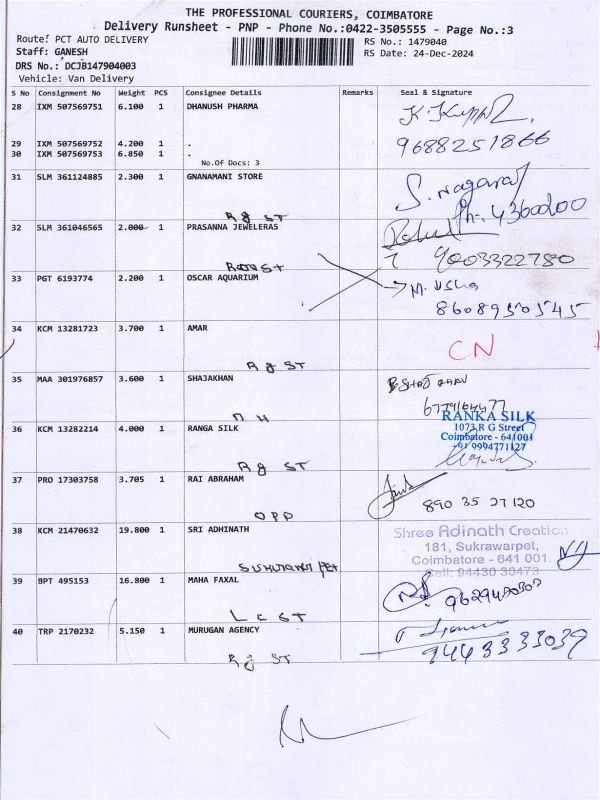 THE PROFESSIONAL COURIERS, COIMBATORE
Delivery Runsheet - PNP - Phone No.:0422-3505555 - Page No.:3
Route: PCT AUTO DELIVERY
RS No.: 1479040
Staff: GANESH
RS Date: 24-Dec-2024
DRS No.: DCJB147904003
Vehicle: Van Delivery
S No Consignment No Weight PCS Consignee Details Remarks Seal & Signature
28 IXM 507569751 6.100 1 DHANUSH PHARMA
9688251866
29 IXM 507569752 4.200 1 .
30 IXM 507569753 6.850 1 .
No.Of Docs: 3
31 SLM 361124885 2.300 1 GNANAMANI STORE
S. nagaraj
Ph: 4360200
Rg ST
32 SLM 361046565 2.000 1 PRASANNA JEWELERAS
9003322780
33 PGT 6193774 2.200 1 OSCAR AQUARIUM
M. Usha
8608950545
34 KCM 13281723 3.700 1 AMAR
CN
Rg ST
35 MAA 301976857 3.600 1 SHAJAKHAN
36 KCM 13282214 4.000 1 RANGA SILK
RANKA SILK
1073,R G Street
Coimbatore - 641001
+91 9994771127
Rg ST
37 PRO 17303758 3.705 1 RAI ABRAHAM
890 35 27120
OPP
38 KCM 21470632 19.800 1 SRI ADHINATH
Shree Adinath Creation
181, Sukrawarpet,
Coimbatore - 641 001.
Cell: 94430 30473
39 BPT 495153 16.800 1 MAHA FAXAL
L C ST
40 TRP 2170232 5.150 1 MURUGAN AGENCY
9443333039
Rg ST